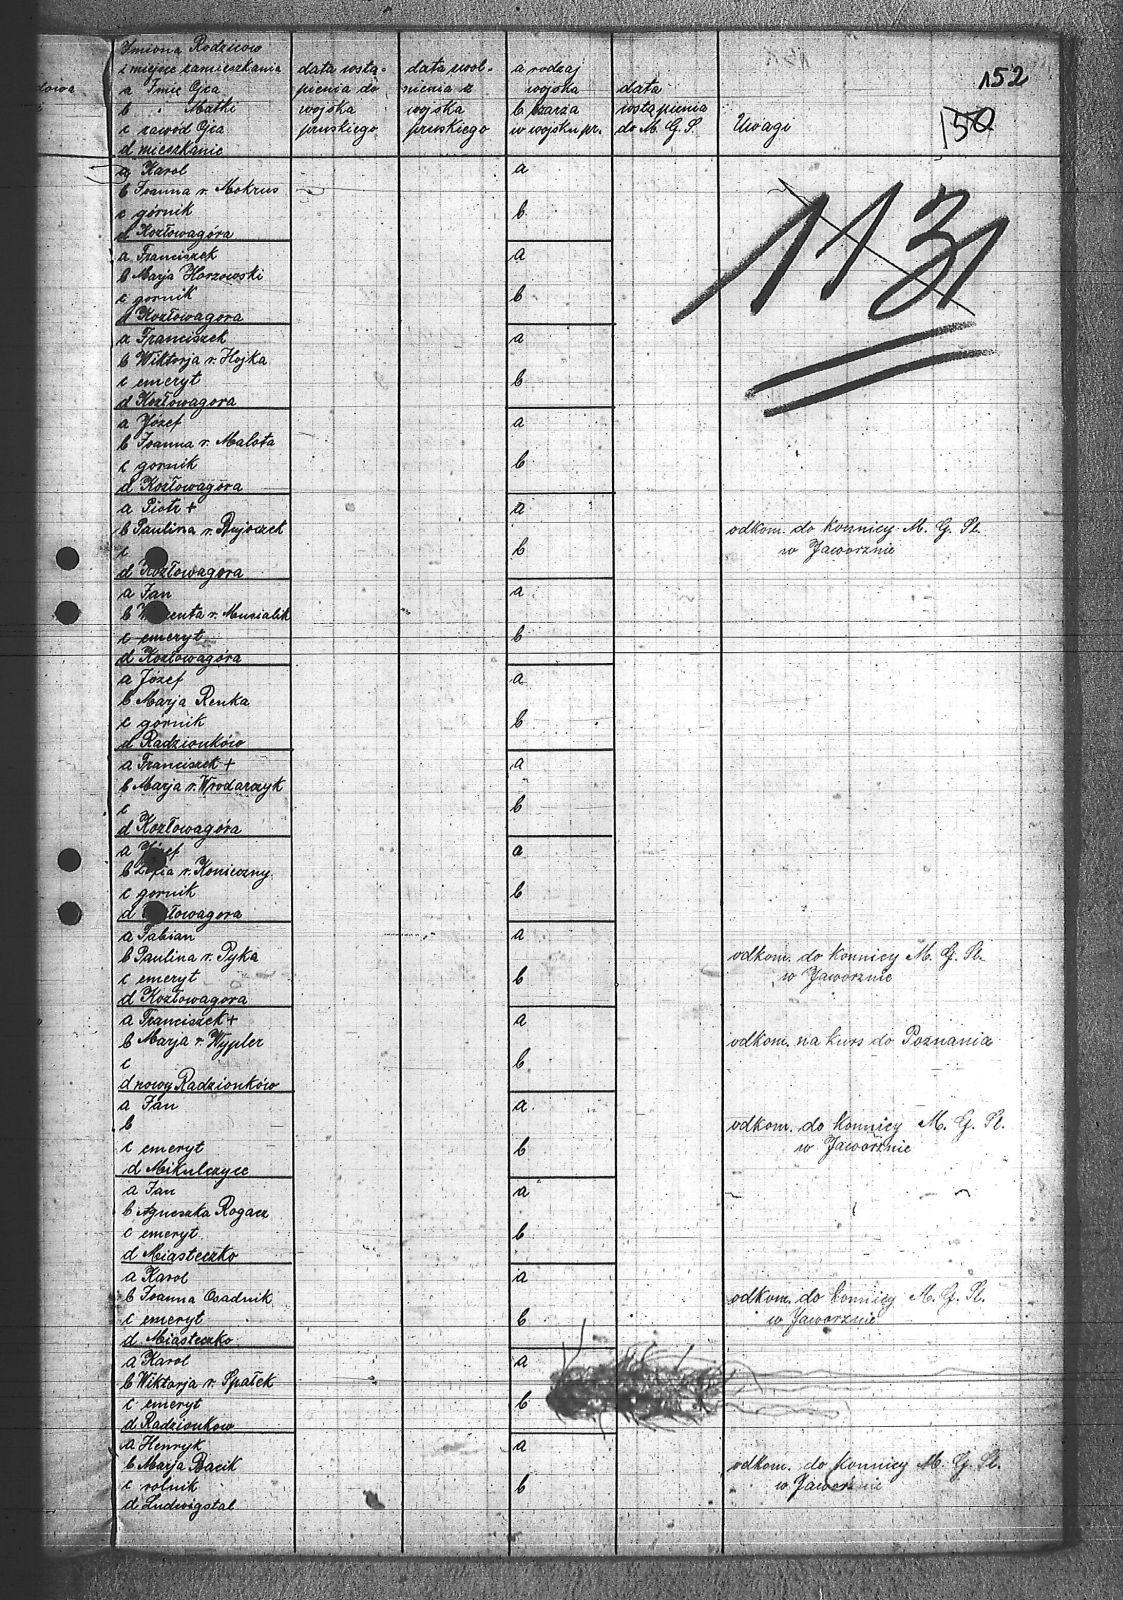 152
150
1131
Imiona Rodziców
i miejsce zamieszkania
a Imię Ojca
b " Matki
c zawód Ojca
d mieszkanie
data wstą-
pienia do
wojska
pruskiego
data zwol-
nienia z
wojska
pruskiego
a rodzaj
wojska
b szarża
w wojsku pr.
data
wstąpienia
do M. G. S.
Uwagi
a Karol
b Joanna r. Mokrus
c górnik
d Kozłowagóra
a
b
a Franciszek
b Marja Horzowski
c gornik
d Kozłowagora
a
b
a Franciszek
b Wiktorja r. Hojka
c emeryt
d Kozłowagora
a
b
a Józef
b Joanna r. Malota
c gornik
d Kozłowagóra
a
b
a Piotr +
b Paulina r.
c
d Kozłowagora
a
b
odkom. do konnicy M. G. Sl.
w Jaworznie
a Jan
b r. Musialik
c emeryt
d Kozłowagóra
a
b
a Józef
b Marja Renka
c górnik
d Radzionków
a
b
a Franciszek +
b Marja r. Wrodarczyk
c
d Kozłowagóra
a
b
a Józef
b Zofia r. Konieczny
c gornik
d Kozłowagora
a
b
a Fabian
b Paulina r. Pyka
c emeryt
d Kozłowagora
a
b
odkom. do konnicy M. G. Sl.
w Jaworznie
a Franciszek +
b Marja r. Wypler
c
d nowy Radzionków
a
b
odkom. na kurs do Poznania
a Jan
b
c emeryt
d Mikulczyce
a
b
odkom. do konnicy M. G. Sl.
w Jaworznie
a Jan
b Agnieszka Rogacz
c emeryt
d Miasteczko
a
b
a Karol
b Joanna Osadnik
c emeryt
d Miasteczko
a
b
odkom. do konnicy M. G. Sl.
w Jaworznie
a Karol
b Wiktorja r. Spałek
c emeryt
d Radzionkow
a
b
a Henryk
b Marja Bacik
c rolnik
d Ludwigstal
a
b
odkom. do konnicy M. G. Sl.
w Jaworznie